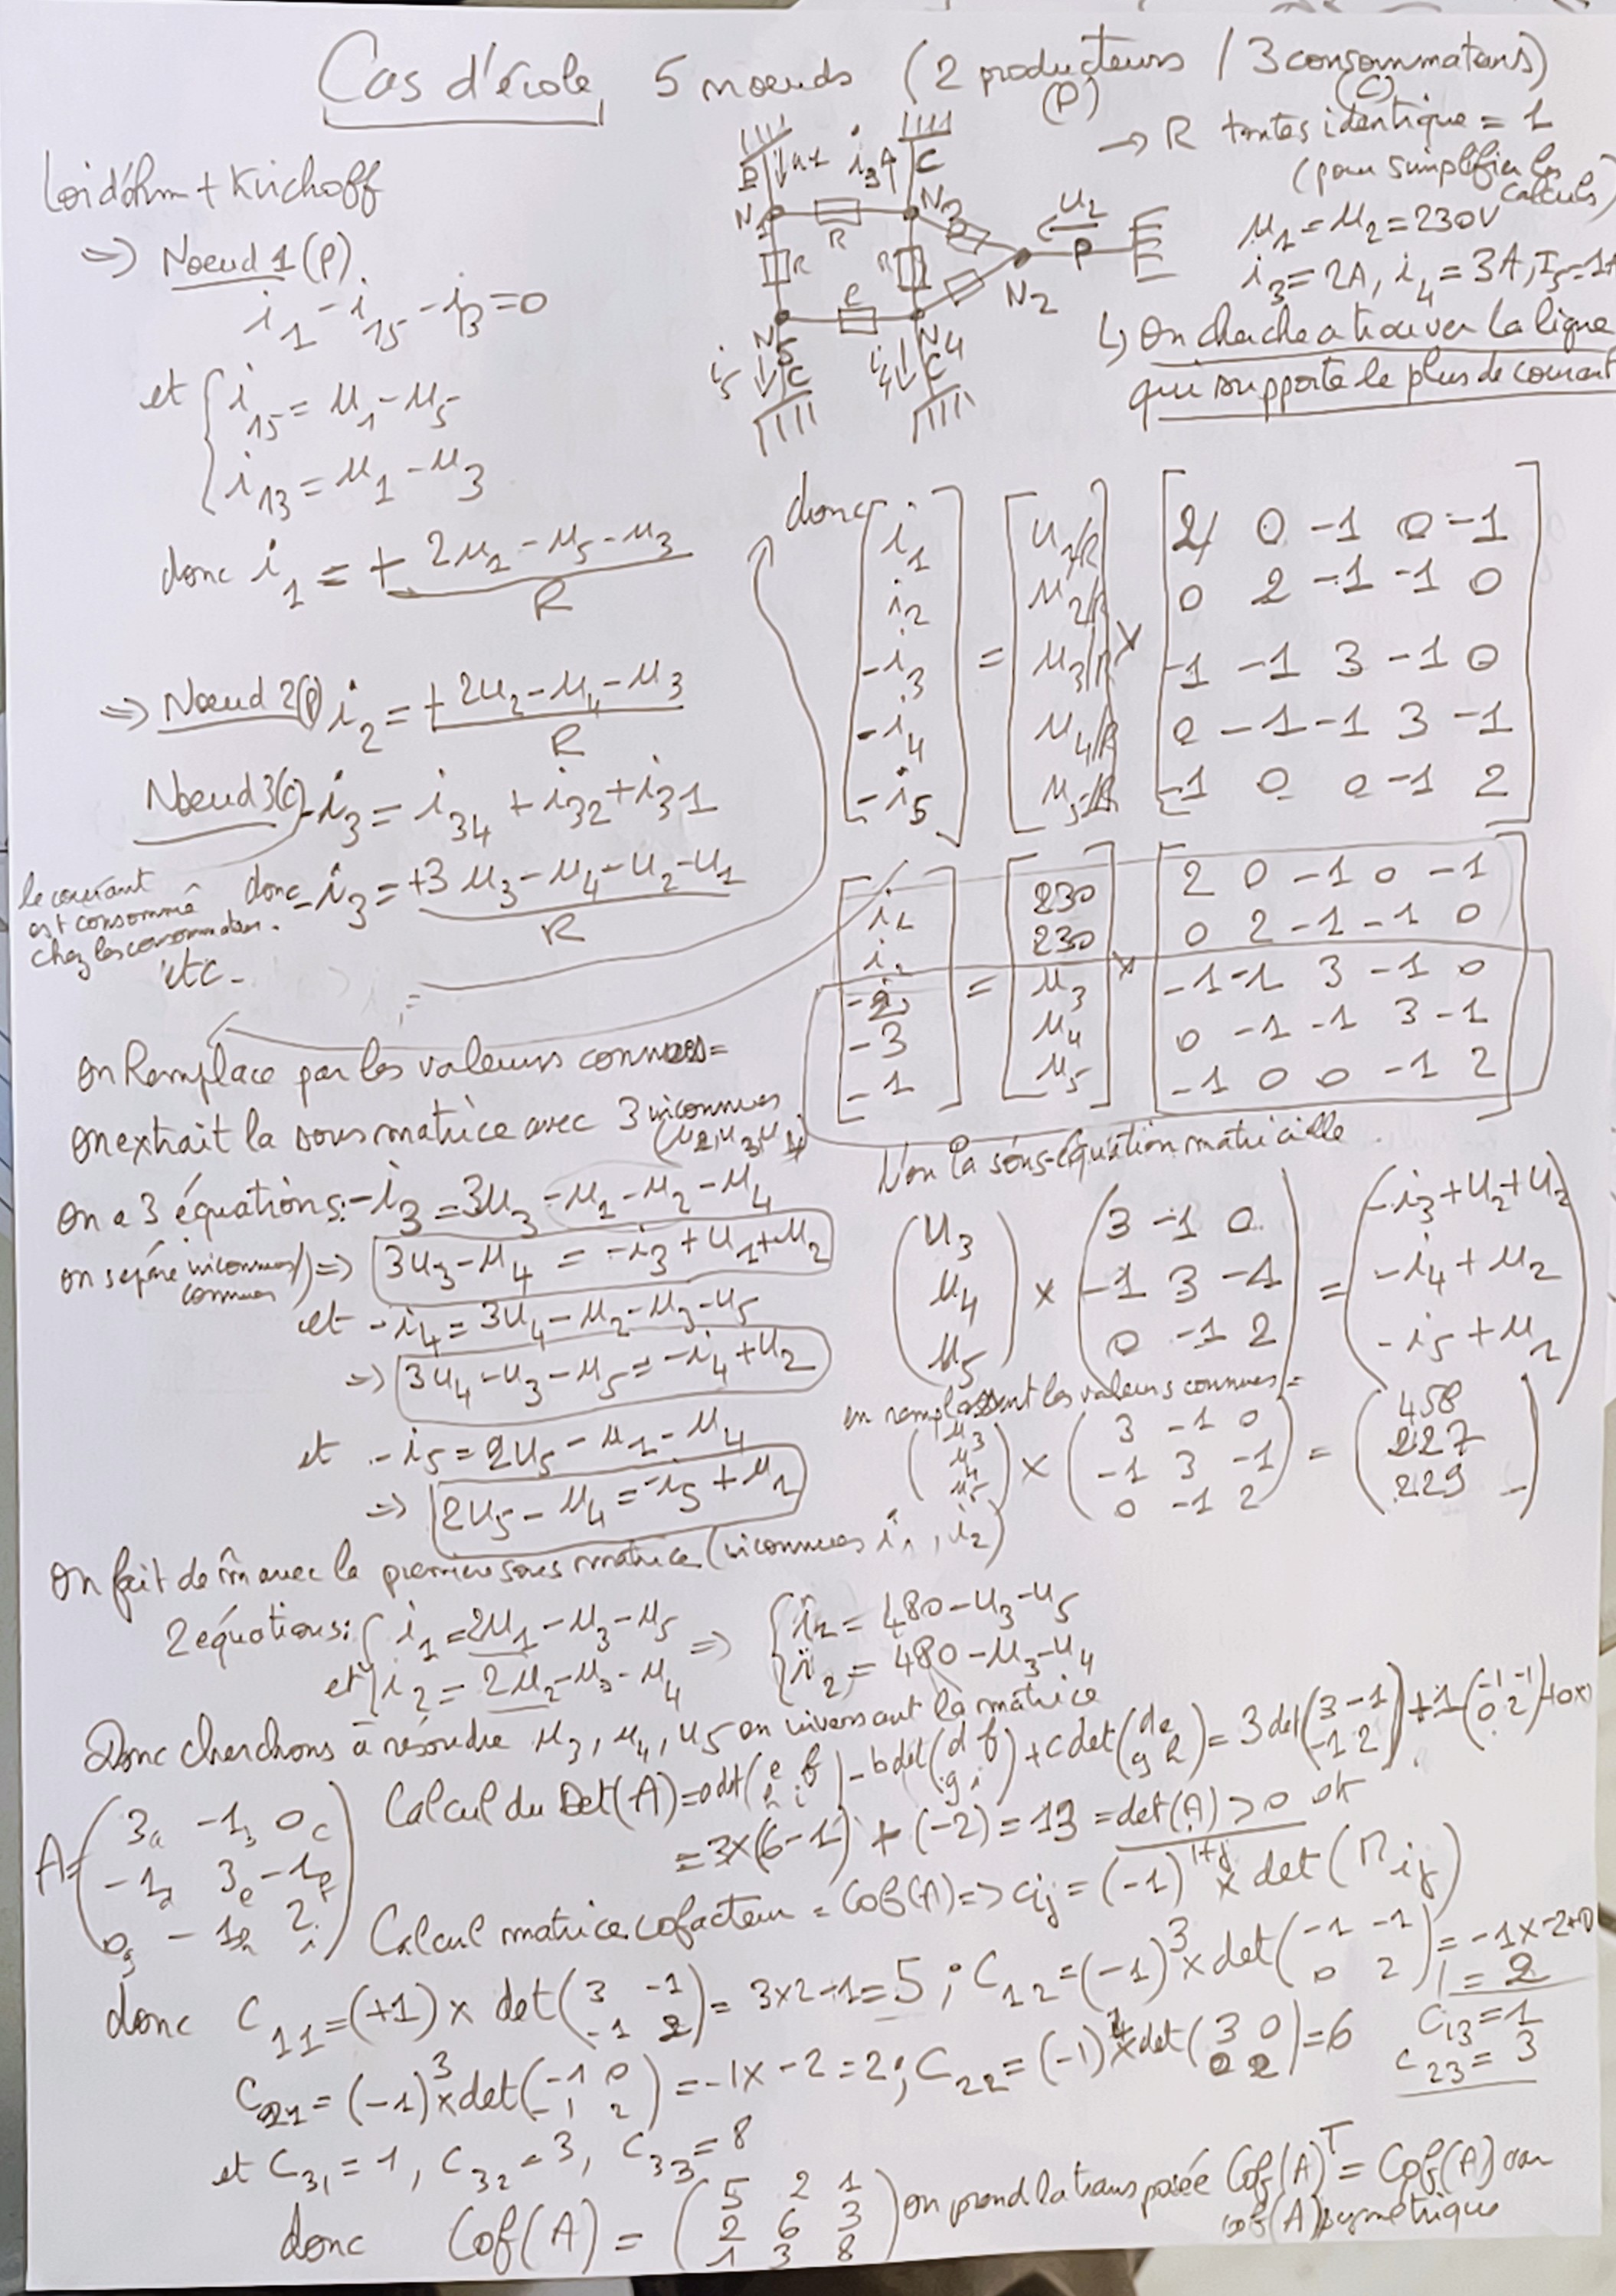 Cas d'école, 5 nœuds (2 producteurs / 3 consommateurs)
(P) (C)
→ R toutes identique = 1
(pour simplifier les calculs)
u1 = u2 = 230V
i3 = 2A, i4 = 3A, I5 = 1A
↳ On cherche a trouver la ligne
qui supporte le plus de courant
P u1 i3 C
N1 R N3
R R u2 P
N2
N5 R N4
i5 C i4 C
Loi d'ohm + Kirchoff
⇒ Nœud 1 (P).
i1 - i15 - i13 = 0
et { i15 = u1 - u5
i13 = u1 - u3
donc i1 = + (2u1 - u5 - u3) / R
⇒ Nœud 2 (P) i2 = + (2u2 - u4 - u3) / R
Nœud 3 (C) -i3 = i34 + i32 + i31
le courant est consommé chez les consommateurs.
donc -i3 = (+3u3 - u4 - u2 - u1) / R
etc -
donc
[i1] = [u1/R] × [2 0 -1 0 -1]
[i2] [u2/R] [0 2 -1 -1 0]
[-i3] [u3/R] [-1 -1 3 -1 0]
[-i4] [u4/R] [0 -1 -1 3 -1]
[-i5] [u5/R] [-1 0 0 -1 2]
[i1] = [230] × [2 0 -1 0 -1]
[i2] [230] [0 2 -1 -1 0]
[-2] [u3] [-1 -1 3 -1 0]
[-3] [u4] [0 -1 -1 3 -1]
[-1] [u5] [-1 0 0 -1 2]
On Remplace par les valeurs connues =
On extrait la sous matrice avec 3 inconnues
(u2, u3, u4)
On a 3 équations: -i3 = 3u3 - u1 - u2 - u4
on sépare inconnues/connues ⇒ 3u3 - u4 = -i3 + u1 + u2
et -i4 = 3u4 - u2 - u3 - u5
⇒ 3u4 - u3 - u5 = -i4 + u2
et -i5 = 2u5 - u1 - u4
⇒ 2u5 - u4 = -i5 + u1
la sous-équation matricielle.
(u3) × (3 -1 0) = (-i3 + u2 + u2)
(u4) (-1 3 -1) (-i4 + u2)
(u5) (0 -1 2) (-i5 + u1)
en remplassant les valeurs connues =
(u3) × (3 -1 0) = (458)
(u4) (-1 3 -1) (227)
(u5) (0 -1 2) (229)
On fait de m̂ avec la première sous matrice (inconnues i1, i2)
2 équations: { i1 = 2u1 - u3 - u5 ⇒ { i1 = 480 - u3 - u5
et { i2 = 2u2 - u3 - u4 { i2 = 480 - u3 - u4
Donc cherchons à résoudre u3, u4, u5 en inversant la matrice
A = (3a -1b 0c)
(-1d 3e -1f)
(0g -1h 2i)
Calcul du Det(A) = a det(e f / h i) - b det(d f / g i) + c det(d e / g h) = 3 det(3 -1 / -1 2) + 1(-1 -1 / 0 2) + 0x
= 3×(6-1) + (-2) = 13 = det(A) > 0 ok
Calcul matrice cofacteur = Cof(A) ⇒ cij = (-1)^(i+j) × det(Mij)
donc C11 = (+1) × det(3 -1 / -1 2) = 3×2-1 = 5 ; C12 = (-1)^3 × det(-1 -1 / 0 2) = -1×-2+0
= 2
C21 = (-1)^3 × det(-1 0 / -1 2) = -1×-2 = 2 ; C22 = (-1)^4 × det(3 0 / 0 2) = 6
C13 = 1
C23 = 3
et C31 = 1, C32 = 3, C33 = 8
donc Cof(A) = (5 2 1) on prend la transposée Cof(A)^T = Cof(A) car
(2 6 3) cof(A) symétrique
(1 3 8)